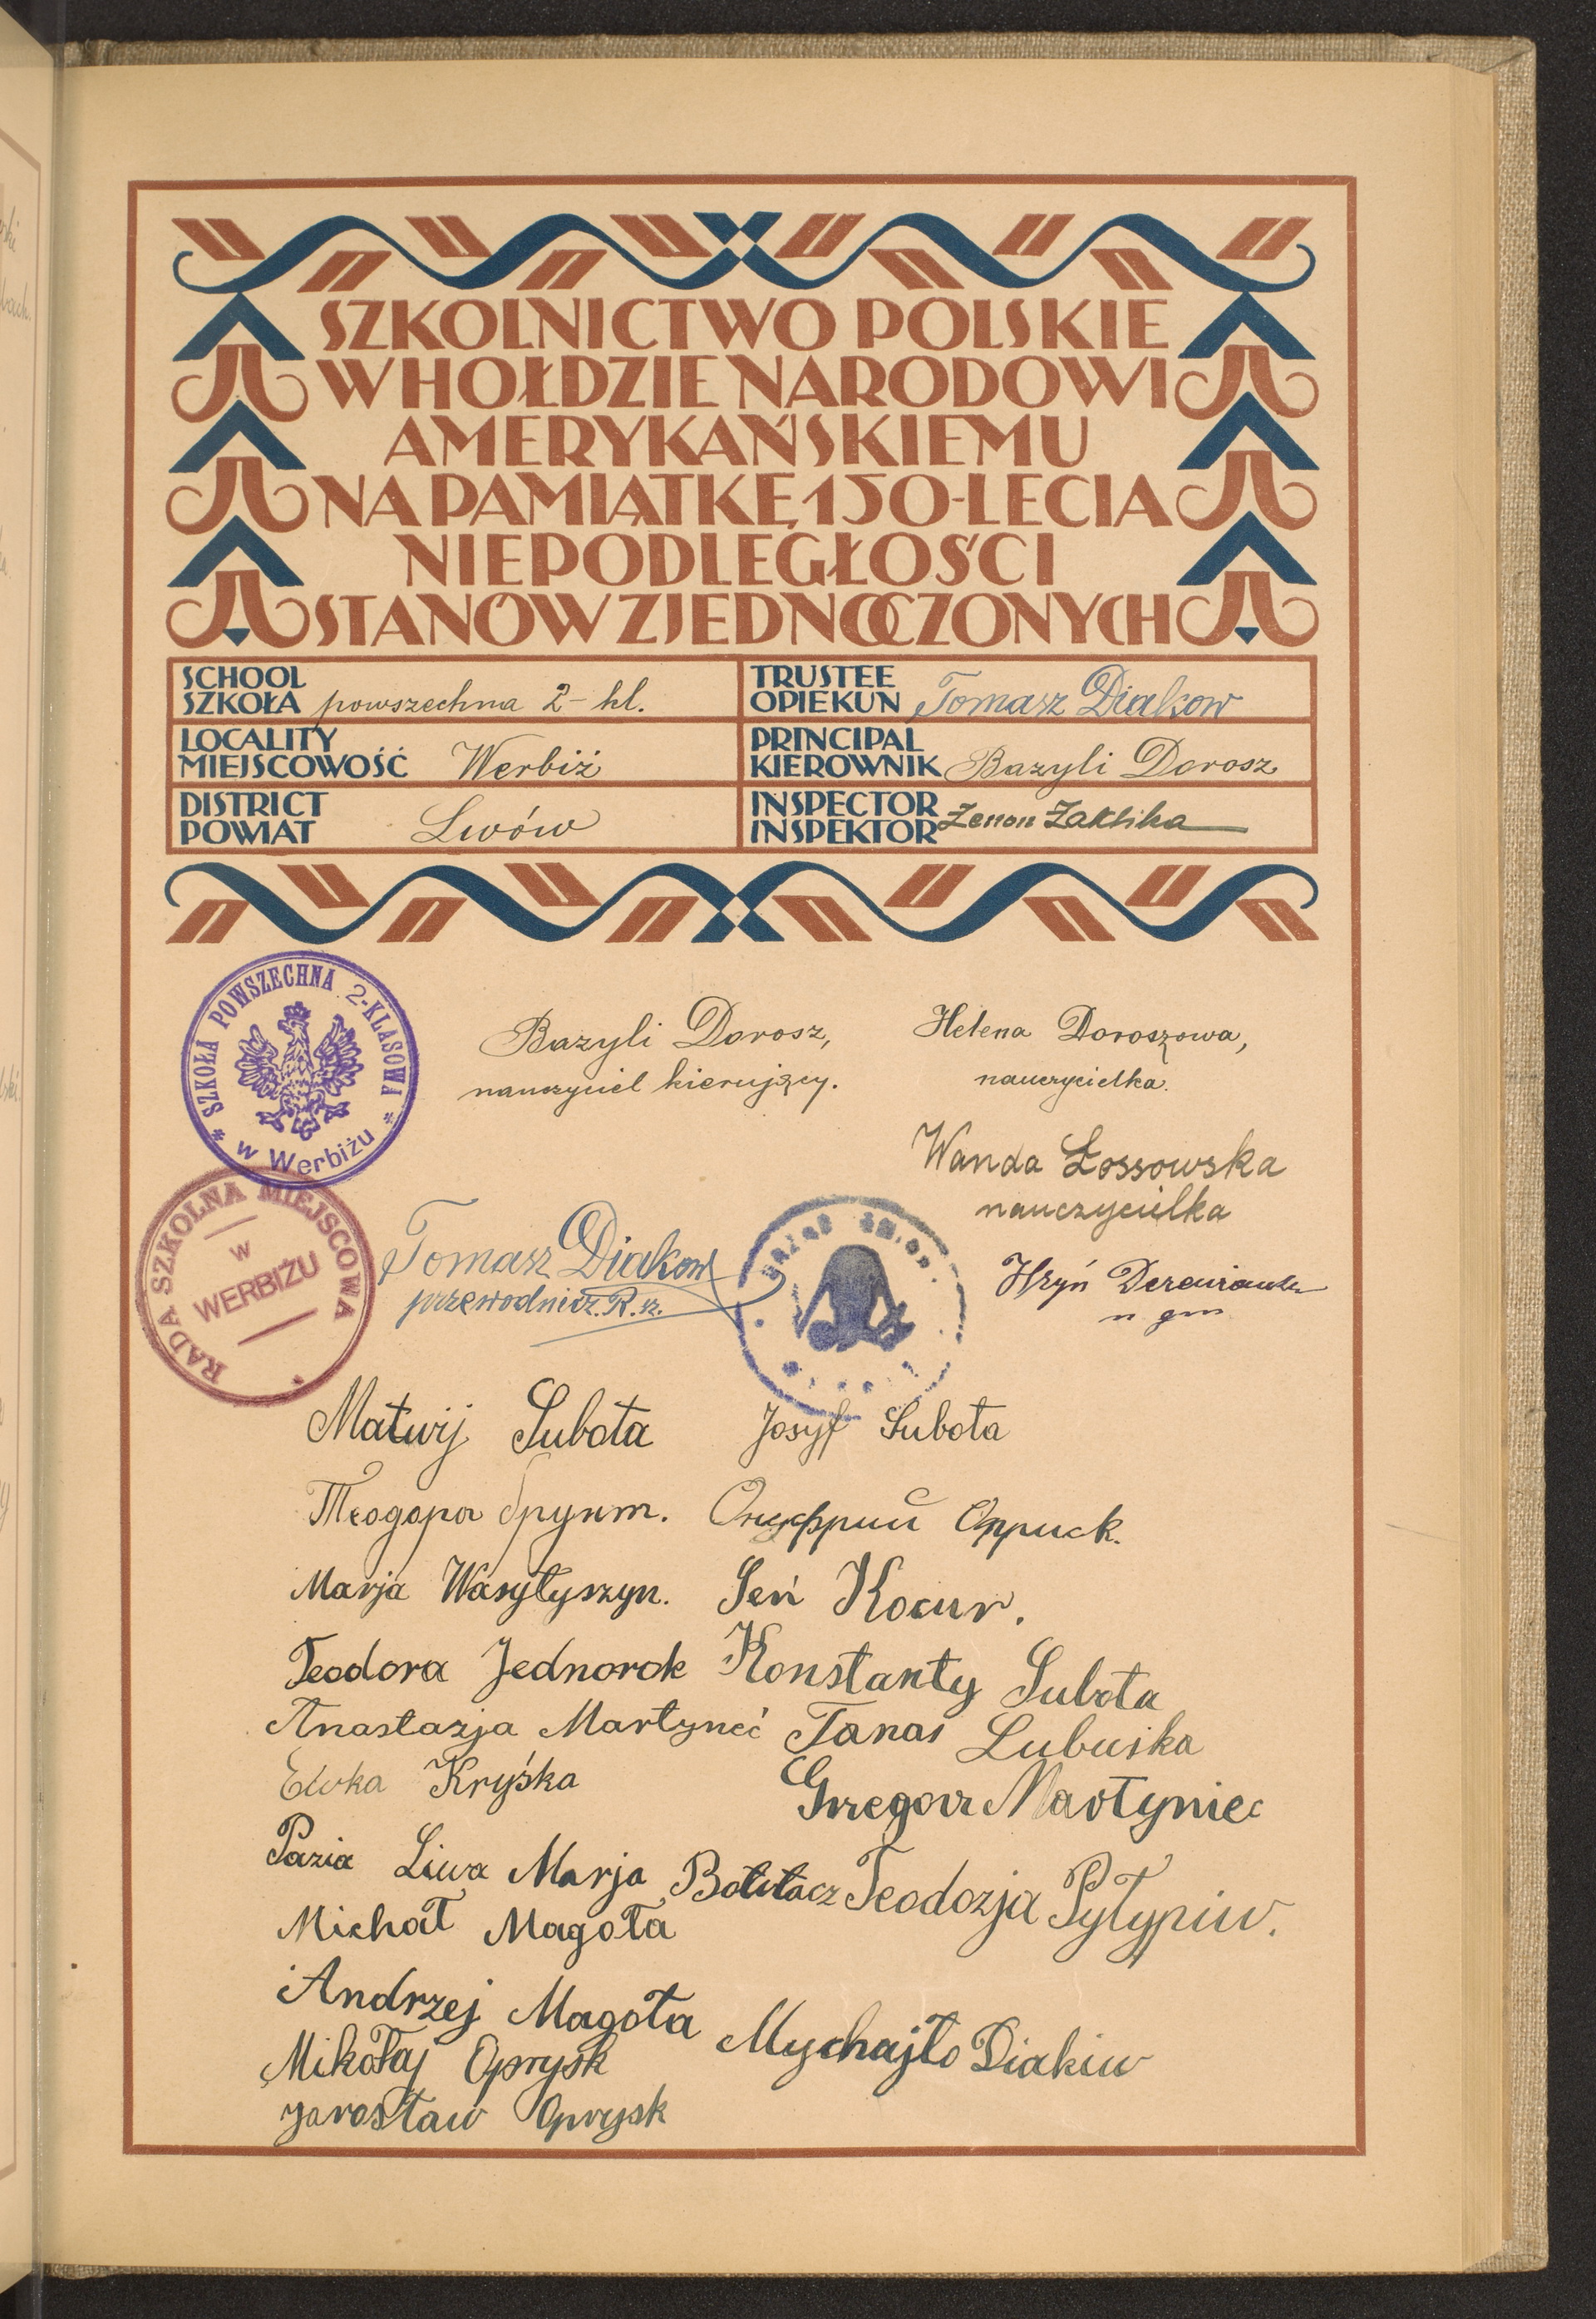 SZKOLNICTWO POLSKIE
W HOŁDZIE NARODOWI
AMERYKAŃSKIEMU
NA PAMIĄTKĘ 150-LECIA
NIEPODLEGŁOŚCI
STANÓW ZJEDNOCZONYCH
SCHOOL
SZKOŁA powszechna 2-kl.
TRUSTEE
OPIEKUN Tomasz Diakow
LOCALITY
MIEJSCOWOŚĆ Werbiż
PRINCIPAL
KIEROWNIK Bazyli Dorosz
DISTRICT
POWIAT Lwów
INSPECTOR
INSPEKTOR Zenon Zaklika
* SZKOŁA POWSZECHNA 2-KLASOWA *
w Werbiżu
Bazyli Dorosz,
nauczyciel kierujący.
Helena Doroszowa,
nauczycielka.
Wanda Łossowska
nauczycielka
RADA SZKOLNA MIEJSCOWA
w
WERBIŻU
Tomasz Diakow
przewodnicz. R. sz.
Hryń
Matwij Subota Josyf Subota
Теодора Онуфрий Оприск.
Marja Wasyłyszyn. Seń Kocur.
Teodora Jednorok Konstanty Subota
Anastazja Martyneć Tanas Lubuska
Ewka Kryśka Grzegorz Martyniec
Pazia Liwa Marja Teodozja Pyłypiw.
Michał Magoła
Andrzej Magoła Mychajło Diakiw
Mikołaj Oprysk
Jarosław Oprysk